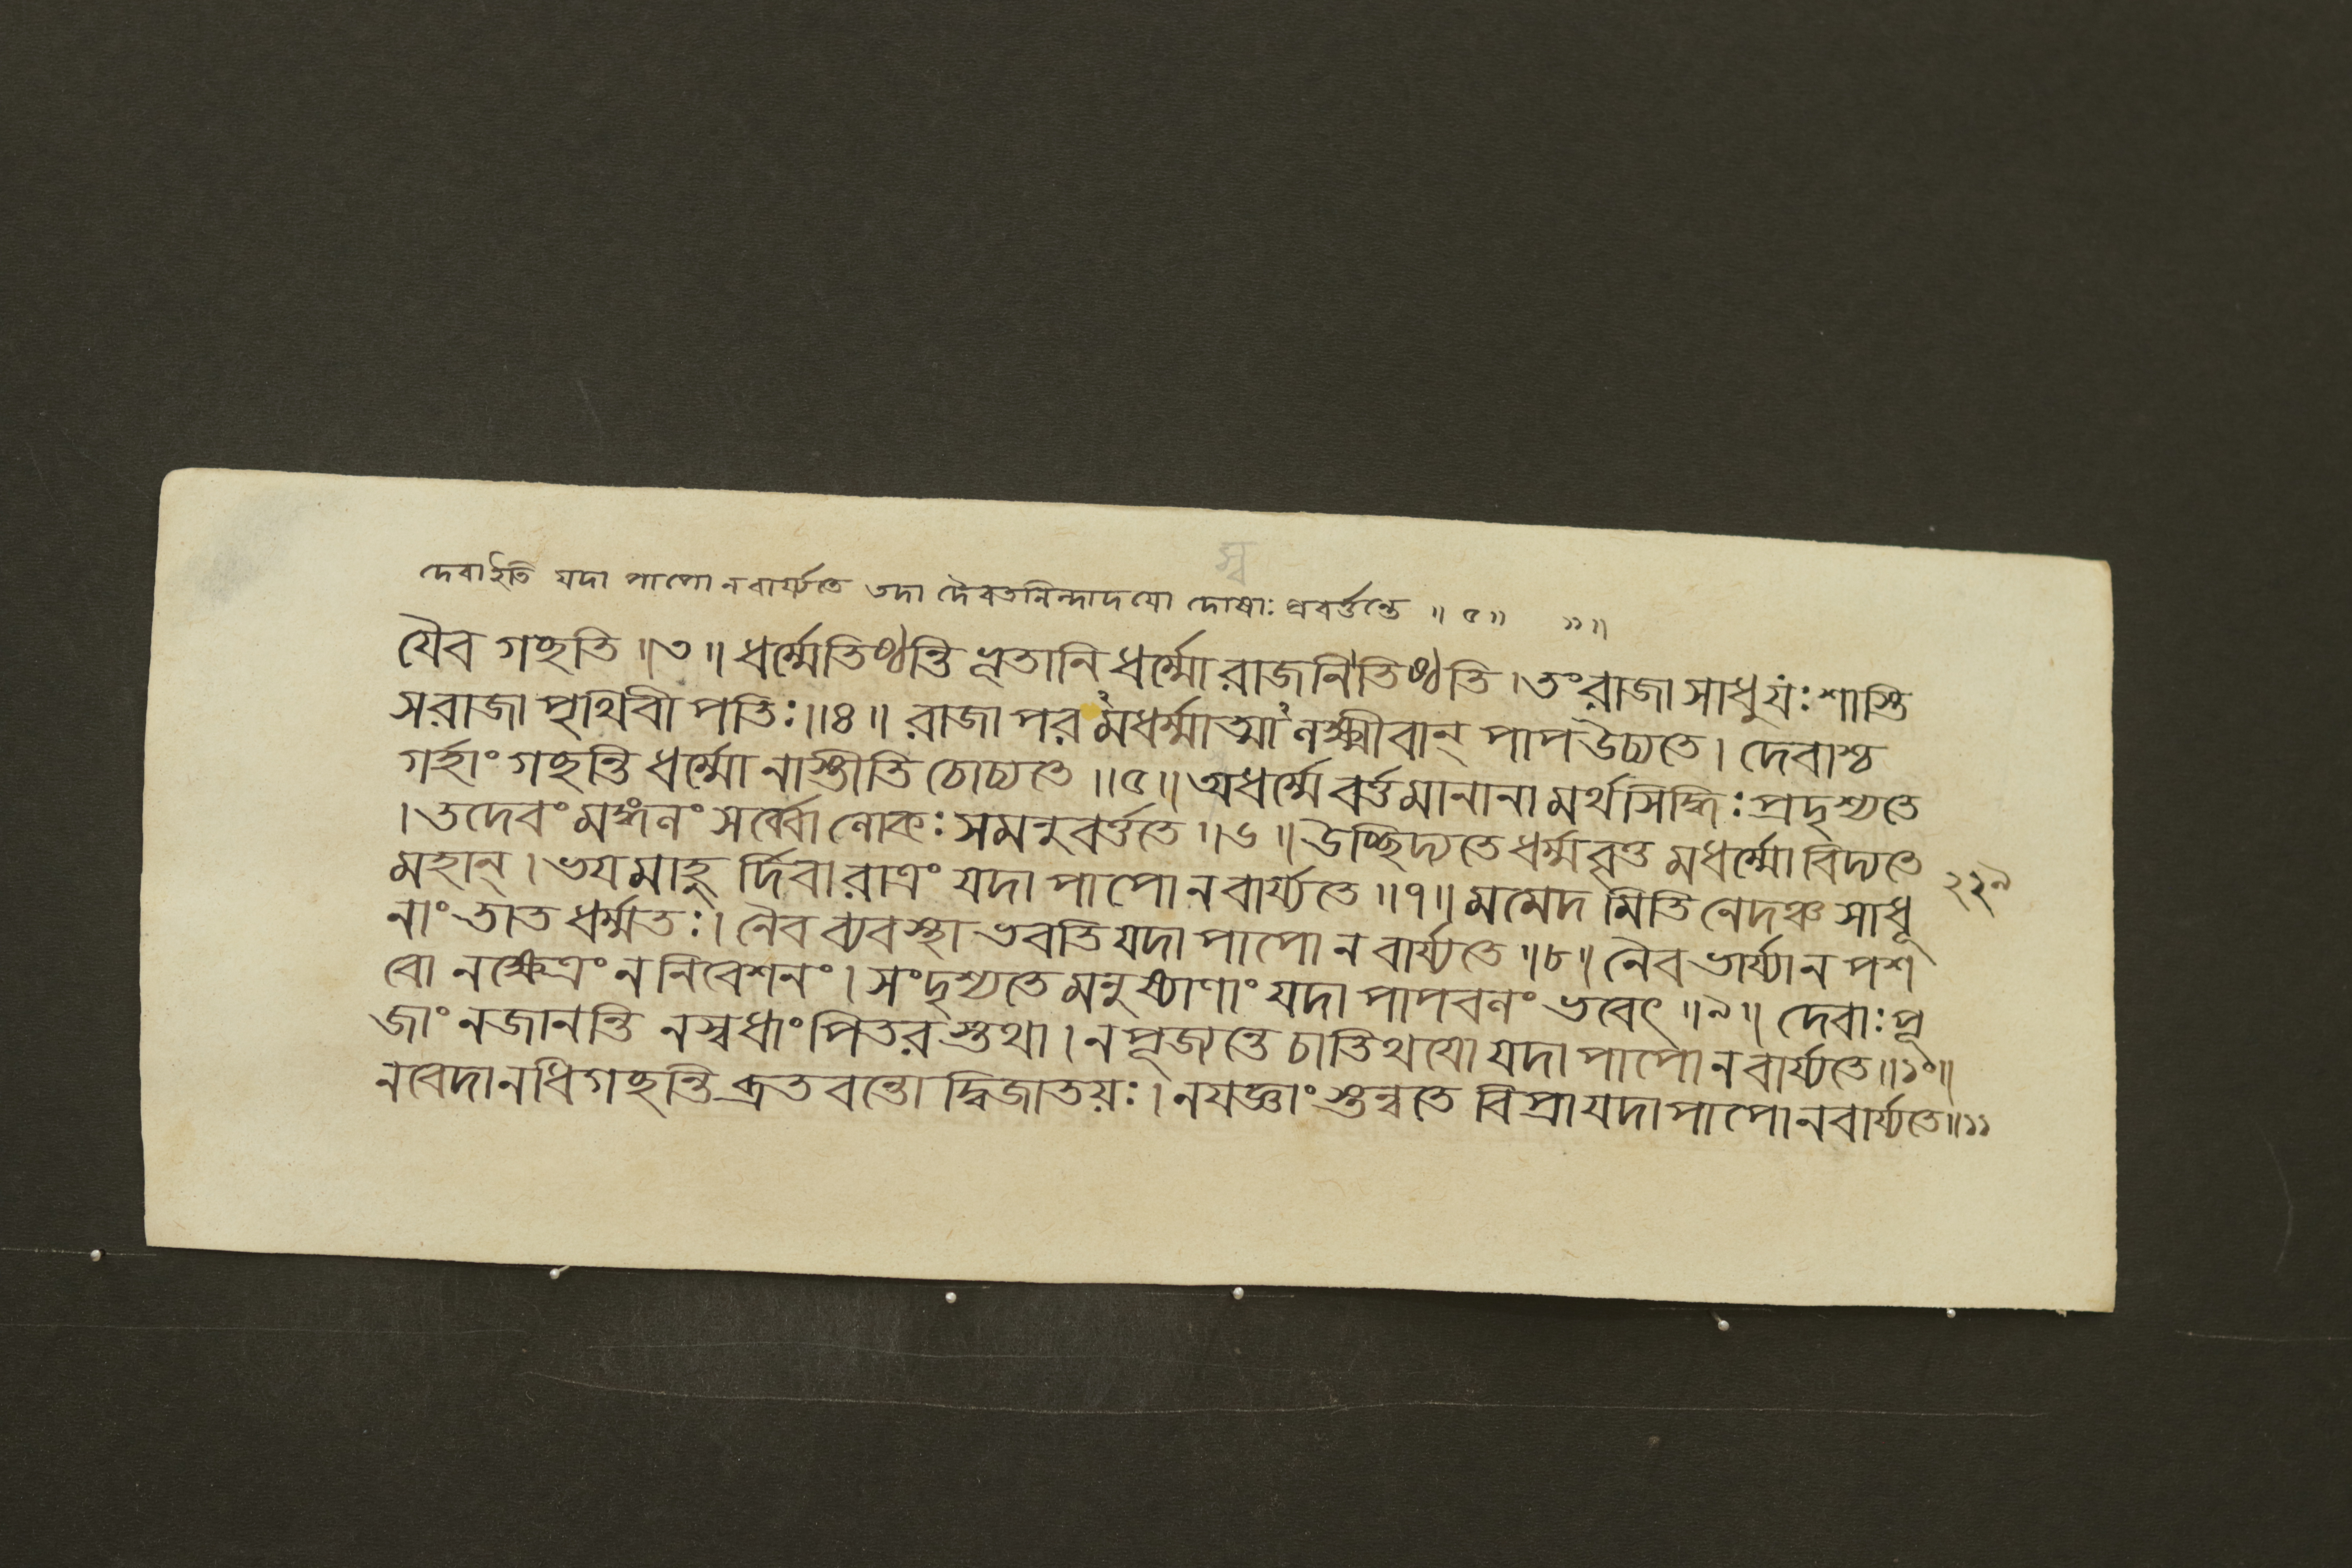 স্ব
দেবা ইতি যদা পাপো ন বার্য্যতে তদা দৈবতনিন্দাদযো দোষাঃ প্রবর্ত্তন্তে ॥ ৫ ॥ ১১॥
যৈব গছতি ॥৩॥ ধর্ম্মেতিষ্ঠন্তি ভূতানি ধর্ম্মো রাজনিতিষ্ঠতি । তং রাজা সাধু যঃ শাস্তি
স রাজা পৃথিবী পতিঃ ॥৪॥ রাজা পরমধর্ম্মাত্মা লক্ষ্মীবান্ পাপ উচ্যতে । দেবাশ্চ
গর্হাং গছন্তি ধর্ম্মো নাস্তীতি চোচ্যতে ॥৫॥ অধর্ম্মে বর্ত্তমানানা মর্থসিদ্ধিঃ প্রদৃশ্যতে
। তদেবং মঙ্গলং সর্ব্বো লোকঃ সমনুবর্ত্ততে ॥৬॥ উচ্ছিদ্যতে ধর্ম্মবৃত্ত মধর্ম্মো বিদ্যতে
মহান্ । ভযমাহু র্দিবারাত্রং যদা পাপো ন বার্য্যতে ॥৭॥ মমেদ মিতি নেদঞ্চ সাধূ
২২৯
নাং তাত ধর্ম্মতঃ । নৈব ব্যবস্থা ভবতি যদা পাপো ন বার্য্যতে ॥৮॥ নৈব ভার্য্যা ন পশ
বো ন ক্ষেত্রং ন নিবেশনং । সংদৃশ্যতে মনুষ্যাণাং যদা পাপবলং ভবেৎ ॥৯॥ দেবাঃ পূ
জাং ন জানন্তি ন স্বধাং পিতরস্তথা । ন পূজ্যন্তে চাতিথযো যদা পাপো ন বার্য্যতে ॥১০॥
ন বেদানধিগছন্তি ব্রতবন্তো দ্বিজাতয়ঃ । ন যজ্ঞাংস্তন্বতে বিপ্রা যদা পাপো ন বার্য্যতে ॥১১